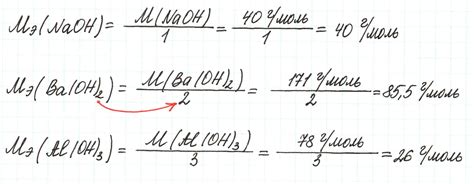 Mэ(NaOH) = M(NaOH)/1 = 40 г/моль/1 = 40 г/моль
Mэ(Ba(OH)₂) = M(Ba(OH)₂)/2 = 171 г/моль/2 = 85,5 г/моль
Mэ(Al(OH)₃) = M(Al(OH)₃)/3 = 78 г/моль/3 = 26 г/моль